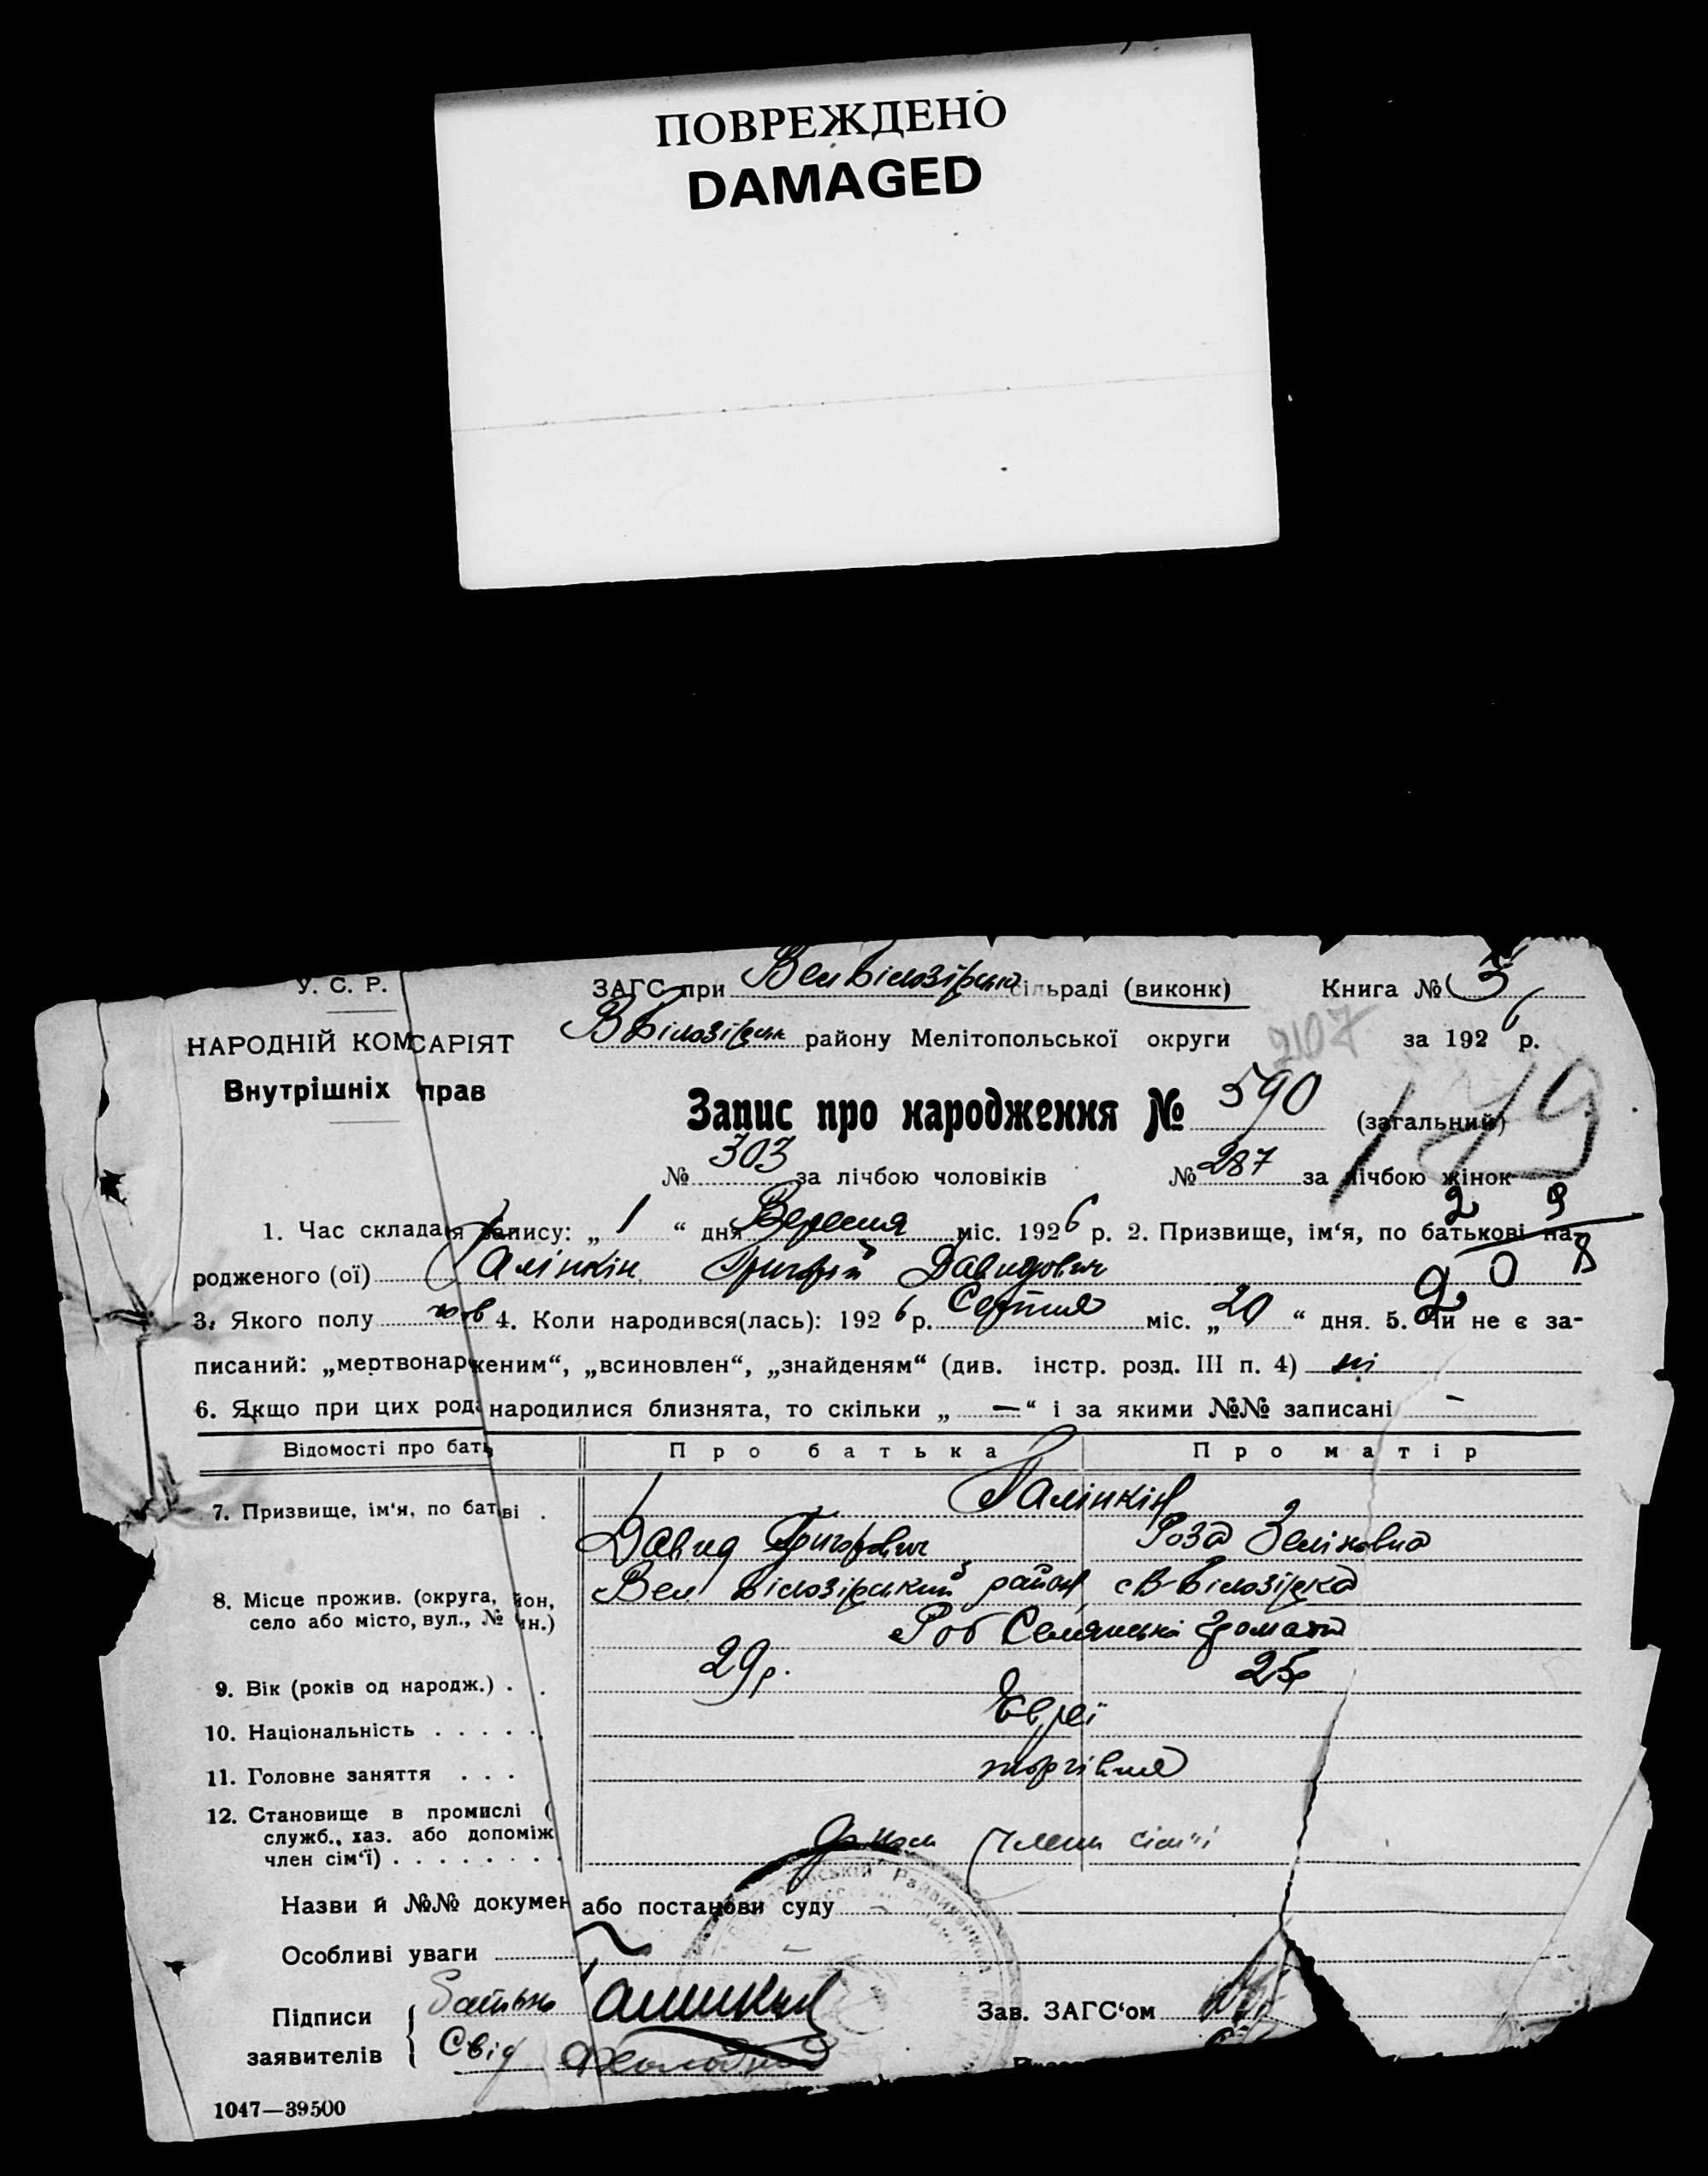 ПОВРЕЖДЕНО
DAMAGED
У. С. Р.
ЗАГС при Вел Білозірськ сільраді (виконк) Книга № 5
НАРОДНІЙ КОМ САРІЯТ
В Білозірськ району Мелітопольської округи за 1926 р.
2107
Внутрішніх прав
Запис про народження № 590 (загальний)
№ 303 за лічбою чоловіків № 287 за лічбою жінок
1. Час склада я запису: „ 1 “ дня Вересня міс. 1926 р. 2. Призвище, ім‘я, по батькові на-
родженого (ої) Галінкін Григорій Давидович
3. Якого полу чов 4. Коли народився(лась): 1926 р. Серпня міс. „ 20 “ дня. 5. Чи не є за-
писаний: „мертвонар женим“, „всиновлен“, „знайденям“ (див. інстр. розд. III п. 4) ні
6. Якщо при цих род народилися близнята, то скільки „ — “ і за якими №№ записані –
Відомості про бать Про батька Про матір
7. Призвище, ім‘я, по бат ві . Галінкін
Давид Григорович Роза Зеліковна
8. Місце прожив. (округа, йон, Вел Білозірський район, с В-Білозірка
село або місто, вул., № ин.) Роб Селянська громата
9. Вік (років од народж.) . . 29 р. 25 р
10. Національність . . . . . Євреї
11. Головне заняття . . . торгівля
12. Становище в промислі (
служб., хаз. або допоміж
член сім‘ї) . . . . . . . . Член сім'ї
Назви й №№ докумен або постанови суду –
Особливі уваги –
Підписи Батько Галинкин Зав. ЗАГС‘ом
заявителів Свід
1047—39500